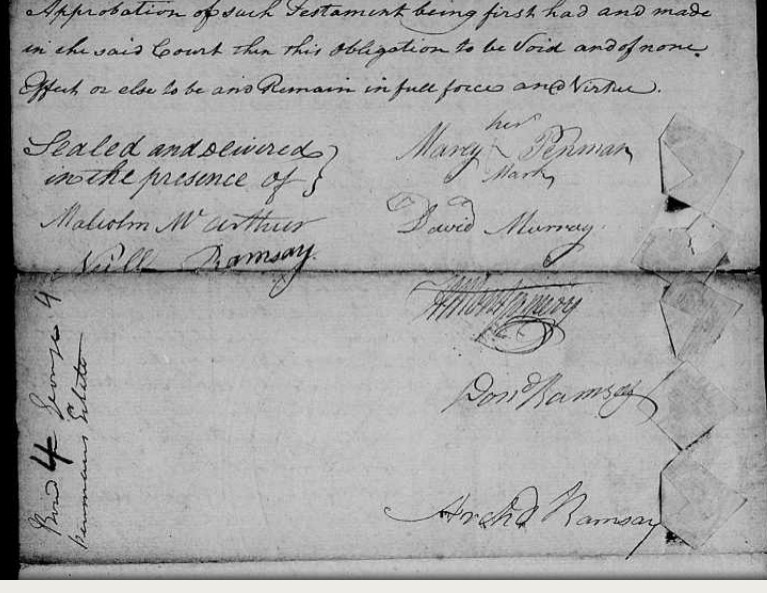 Approbation of such Testament being first had and made
in the said Court then this Obligation to be Void and of none
Effect or else to be and Remain in full force and Virtue.
Sealed and Delivered
in the presence of
Malcolm Mcarthur
Neill Ramsay.
her
Marey Penman
Mark
David Murray.
Dond Ramsay
Archd Ramsay
4 George 4